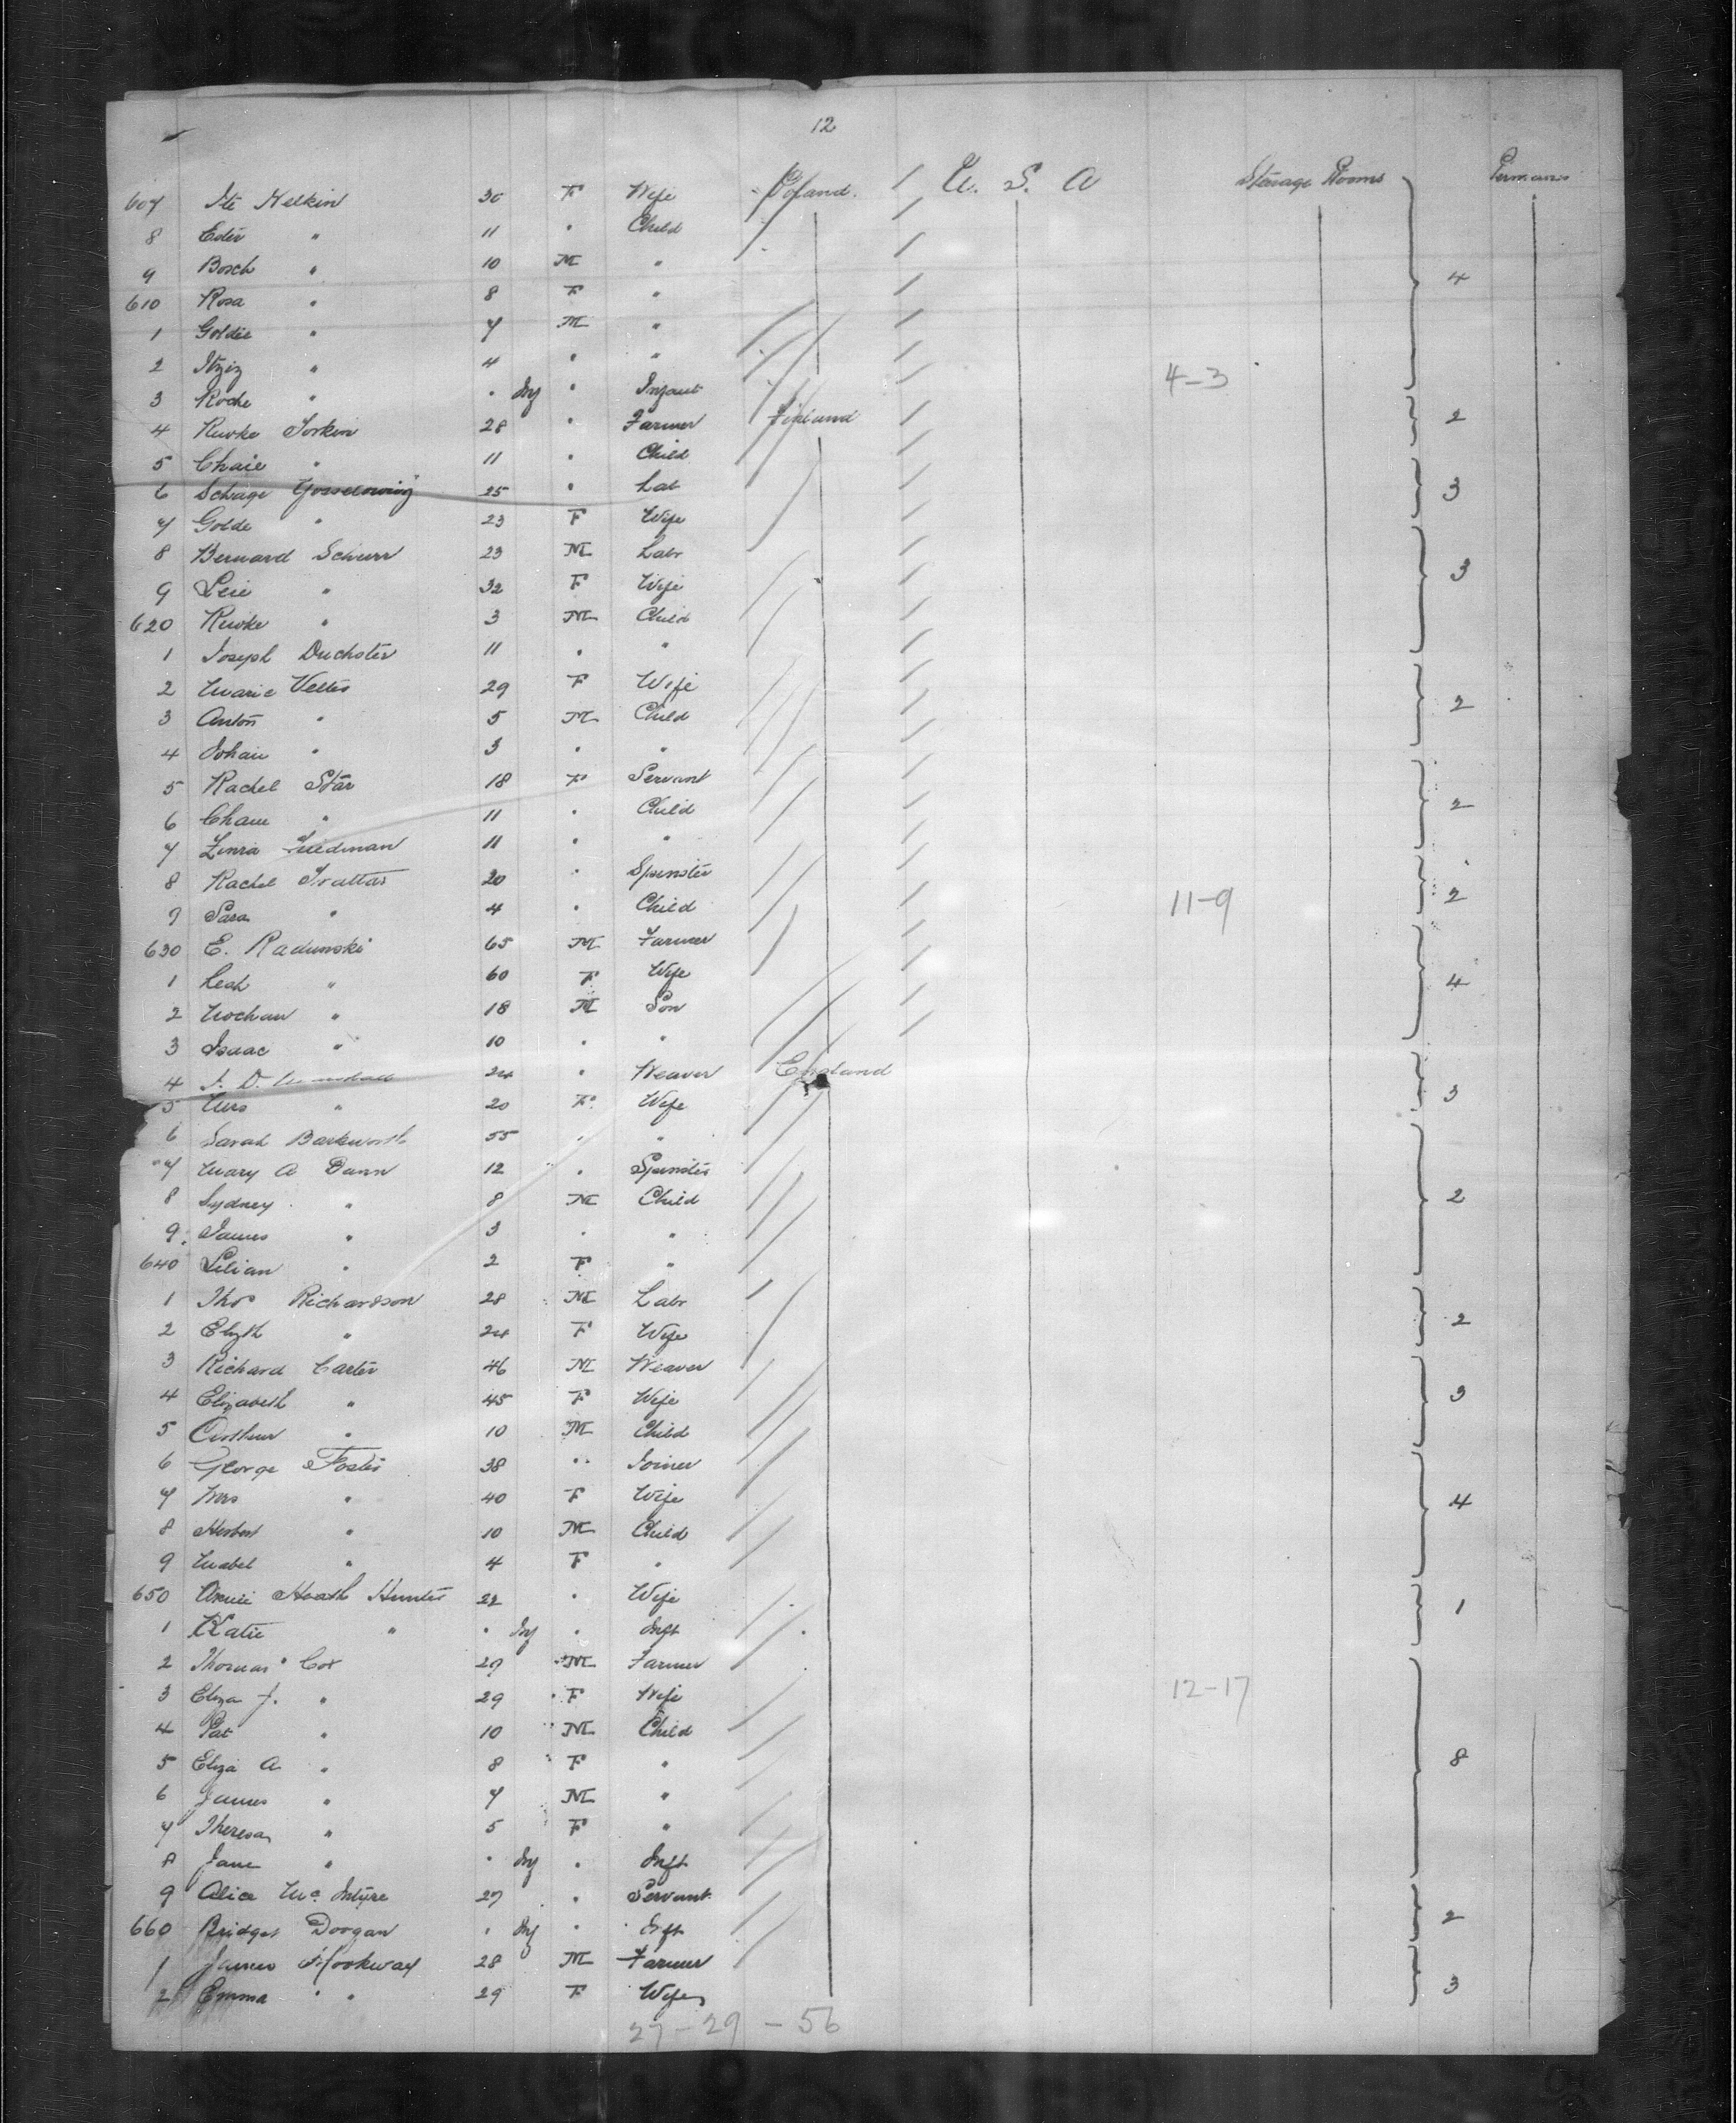 12
607 Ite Helkin 30 F Wife Poland. / U. S. A Steerage Rooms Permanent
8 Ester " 11 " Child /
9 Bosch " 10 M " /
610 Rosa " 8 F " / 4
1 Goldie " 7 M " /
2 Itziz " 4 " " /
3 Roche " " Inf " Infant / 4-3
4 Riwke Sorkin 28 " Farmer Finland / 2
5 Chaie " 11 " Child /
6 Schrage 25 " Lab / 3
7 Golde " 23 F Wife /
8 Bernard Schurr 23 M Labr /
9 Leie " 32 F Wife / 3
620 Riwke " 3 M Child /
1 Joseph Duchster 11 " " /
2 Marie Veltes 29 F Wife /
3 Anton " 5 M Child / 2
4 Johan " 3 " " /
5 Rachel Star 18 F Servant /
6 Chaie " 11 " Child / 2
7 Friedman 11 " " /
8 Rachel Trattas 20 " Spinster /
9 Sara " 4 " Child / 11-9 2
630 E. Radunski 65 M Farmer /
1 Leah " 60 F Wife / 4
2 Nochum " 18 M Son /
3 Isaac " 10 " " /
4 24 " Weaver England
5 Mrs " 20 F Wife 3
6 Sarah Barkworth 55 " "
7 Mary A Dann 12 " Spinster
8 Sydney " 8 M Child 2
9 James " 3 " "
640 Lilian " 2 F "
1 Thos Richardson 28 M Labr
2 Elizth " 24 F Wife 2
3 Richard Carter 46 M Weaver
4 Elizabeth " 45 F Wife 3
5 Arthur " 10 M Child
6 George Foster 38 " Joiner
7 Mrs " 40 F Wife 4
8 Herbert " 10 M Child
9 Mabel " 4 F "
650 Annie Heath Hunter 22 " Wife 1
1 Katie " " Inf " Inft
2 Thomas Cox 29 M Farmer
3 Eliza J. " 29 F Wife 12-17
4 Pat " 10 M Child
5 Eliza A " 8 F " 8
6 James " 7 M "
7 Theresa " 5 F "
8 Jane " " Inf " Inft
9 Alice McIntyre 27 " Servant
660 Bridget Doogan " Inf " Inft 2
1 James Hookway 28 M Farmer
2 Emma " " 29 F Wife 3
27-29-56